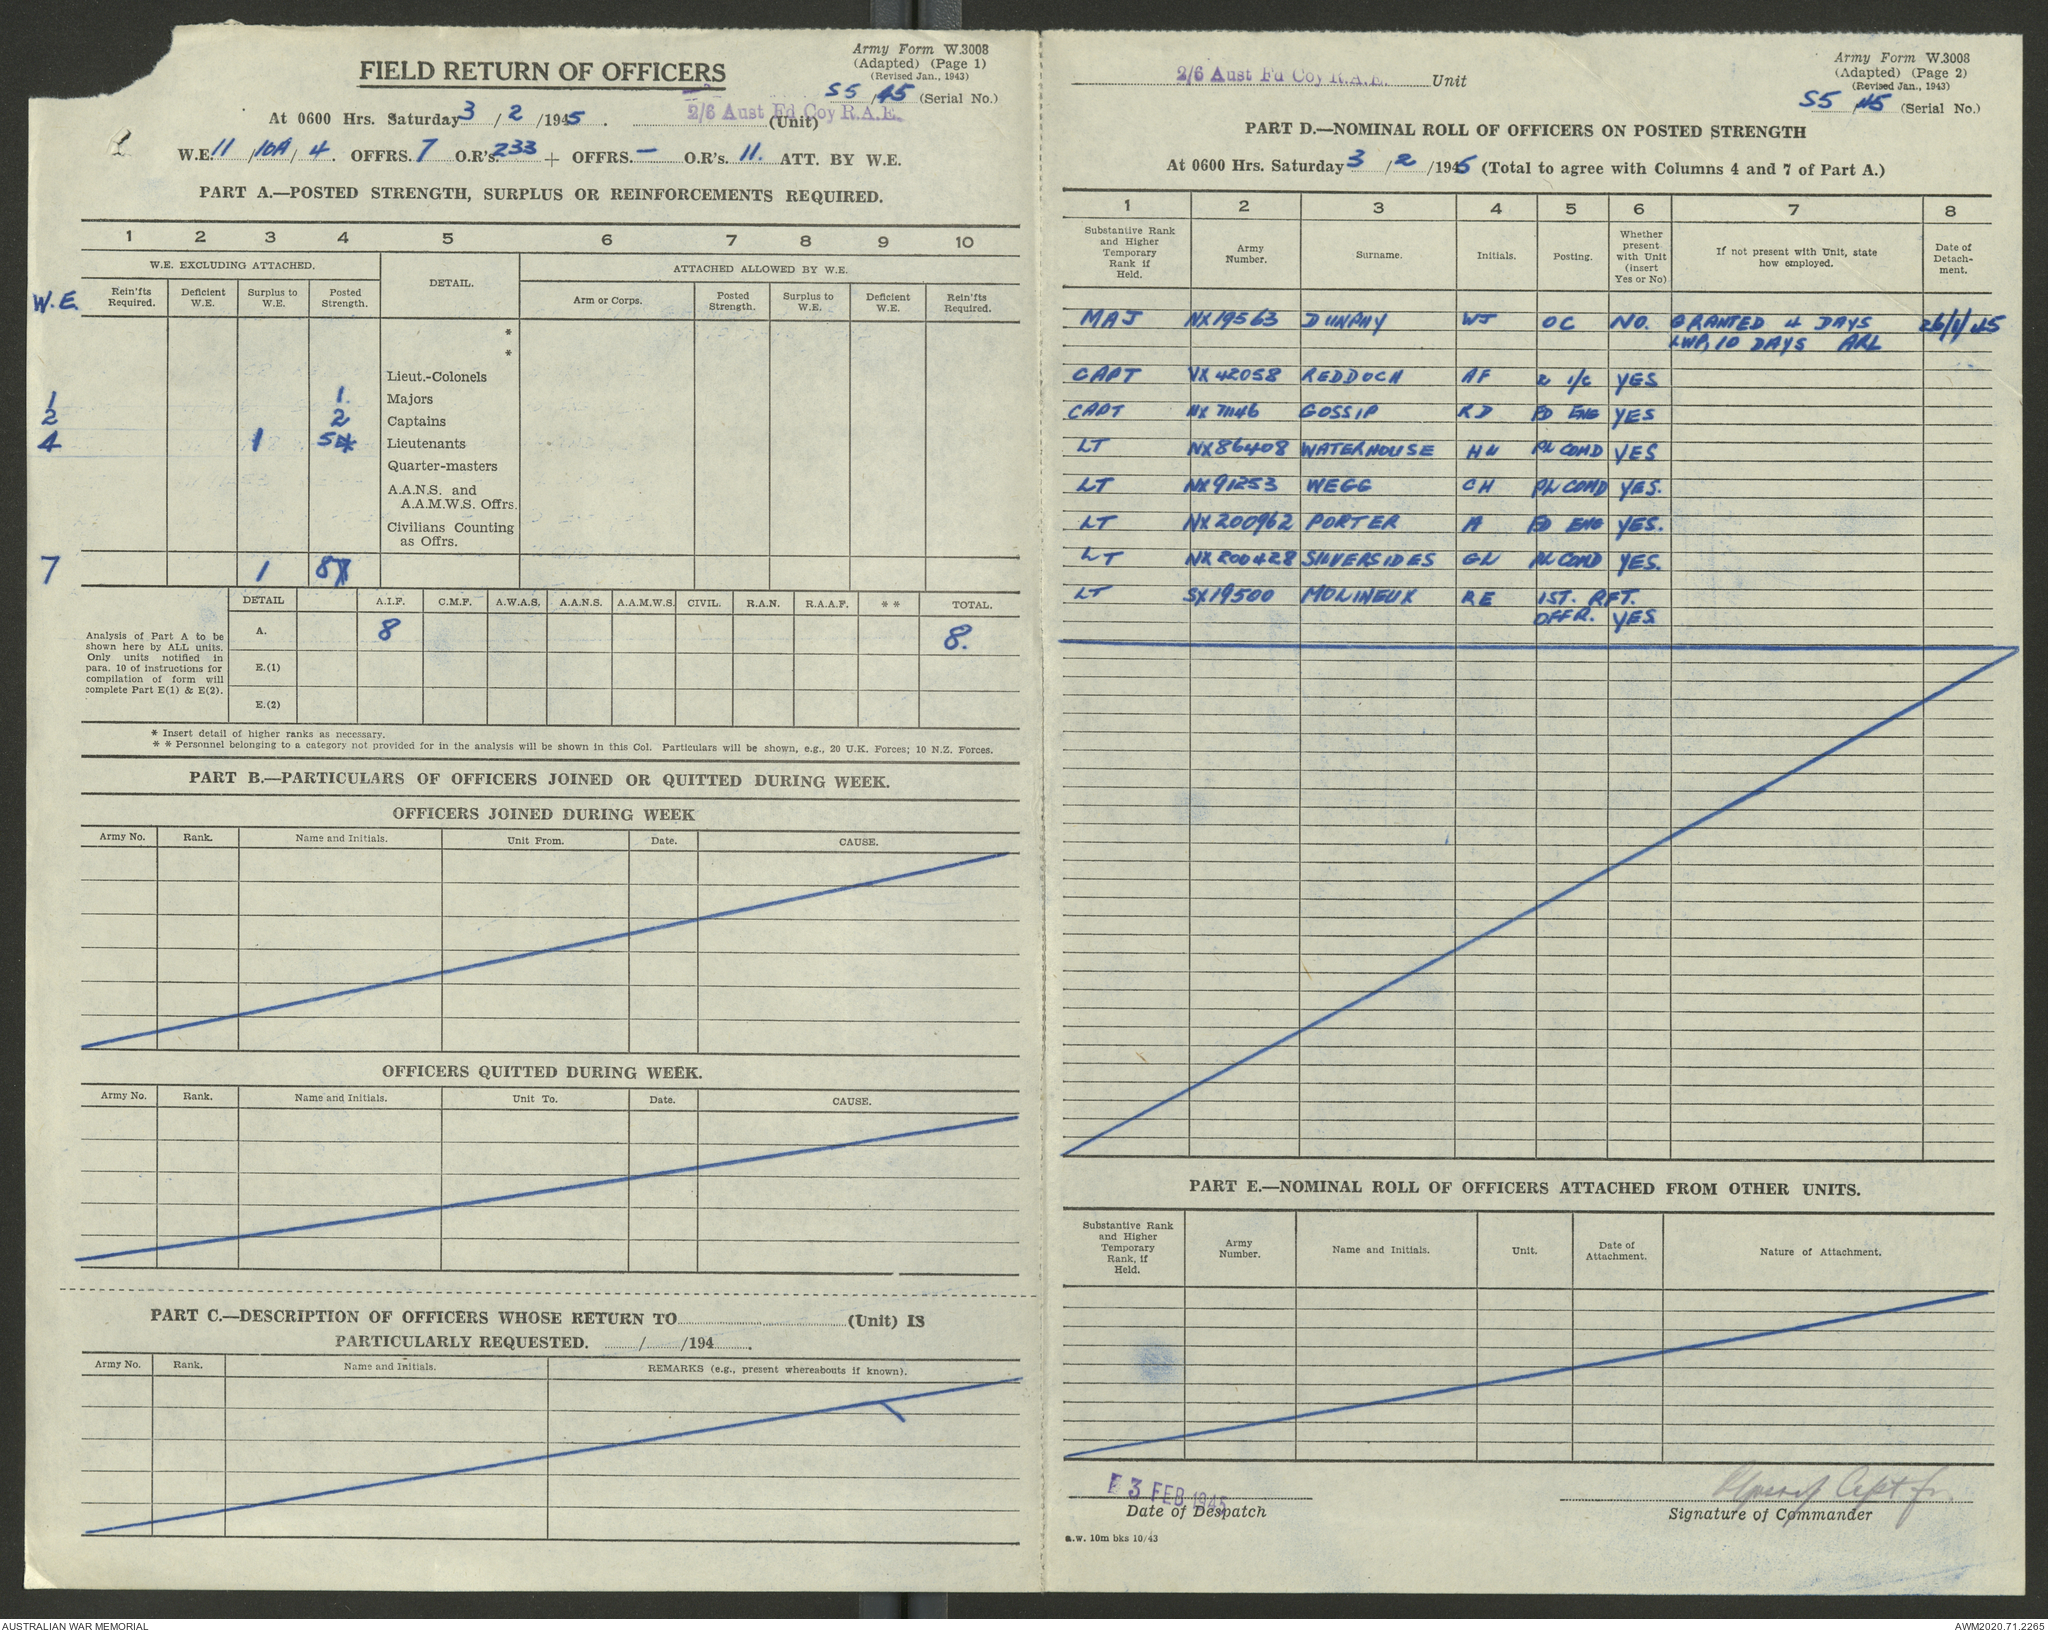 Army Form W.3008
(Adapted) (Page 1)
(Revised Jan., 1943)
FIELD RETURN OF OFFICERS
55/45 (Serial No.)
At 0600 Hrs. Saturday 3/2/1945. 2/6 Aust Fd Coy R.A.E. (Unit)
W.E. 11/10A/4. OFFRS. 7 O.R's. 233 + OFFRS. — O.R's. 11. ATT. BY W.E.
PART A.—POSTED STRENGTH, SURPLUS OR REINFORCEMENTS REQUIRED.
1 2 3 4 5 6 7 8 9 10
W.E. EXCLUDING ATTACHED. DETAIL. ATTACHED ALLOWED BY W.E.
W.E. Rein'fts Required. Deficient W.E. Surplus to W.E. Posted Strength. Arm or Corps. Posted Strength. Surplus to W.E. Deficient W.E. Rein'fts Required.
*
*
Lieut.-Colonels
1 1. Majors
2 2 Captains
4 1 5 Lieutenants
Quarter-masters
A.A.N.S. and
A.A.M.W.S. Offrs.
Civilians Counting
as Offrs.
7 1 8
DETAIL A.I.F. C.M.F. A.W.A.S. A.A.N.S. A.A.M.W.S. CIVIL. R.A.N. R.A.A.F. * * TOTAL.
A. 8 8.
E.(1)
E.(2)
Analysis of Part A to be
shown here by ALL units.
Only units notified in
para. 10 of instructions for
compilation of form will
complete Part E(1) & E(2).
* Insert detail of higher ranks as necessary.
* * Personnel belonging to a category not provided for in the analysis will be shown in this Col. Particulars will be shown, e.g., 20 U.K. Forces; 10 N.Z. Forces.
PART B.—PARTICULARS OF OFFICERS JOINED OR QUITTED DURING WEEK.
OFFICERS JOINED DURING WEEK
Army No. Rank. Name and Initials. Unit From. Date. CAUSE.
OFFICERS QUITTED DURING WEEK.
Army No. Rank. Name and Initials. Unit To. Date. CAUSE.
PART C.—DESCRIPTION OF OFFICERS WHOSE RETURN TO (Unit) IS
PARTICULARLY REQUESTED. / /194 .
Army No. Rank. Name and Initials. REMARKS (e.g., present whereabouts if known).
Army Form W.3008
(Adapted) (Page 2)
(Revised Jan., 1943)
2/6 Aust Fd Coy R.A.E. Unit
55/45 (Serial No.)
PART D.—NOMINAL ROLL OF OFFICERS ON POSTED STRENGTH
At 0600 Hrs. Saturday 3/2/1945 (Total to agree with Columns 4 and 7 of Part A.)
1 2 3 4 5 6 7 8
Substantive Rank and Higher Temporary Rank if Held. Army Number. Surname. Initials. Posting. Whether present with Unit (insert Yes or No) If not present with Unit, state how employed. Date of Detachment.
MAJ NX19563 DUNPHY WJ OC NO. GRANTED 4 DAYS 26/1/45
LWP, 10 DAYS ARL
CAPT VX42058 REDDOCH AF 2 i/c YES
CAPT NX71146 GOSSIP RD FD ENG YES
LT NX86408 WATERHOUSE HN PL COMD YES
LT NX91253 WEGG CH PL COMD YES.
LT NX200962 PORTER A FD ENG YES.
LT NX200428 SILVERSIDES GL PL COMD YES.
LT SX19500 MOLINEUX RE 1ST. RFT.
OFFR. YES
PART E.—NOMINAL ROLL OF OFFICERS ATTACHED FROM OTHER UNITS.
Substantive Rank and Higher Temporary Rank, if Held. Army Number. Name and Initials. Unit. Date of Attachment. Nature of Attachment.
3 FEB 1945
Date of Despatch
Capt for
Signature of Commander
a.w. 10m bks 10/43
AUSTRALIAN WAR MEMORIAL AWM2020.71.2265